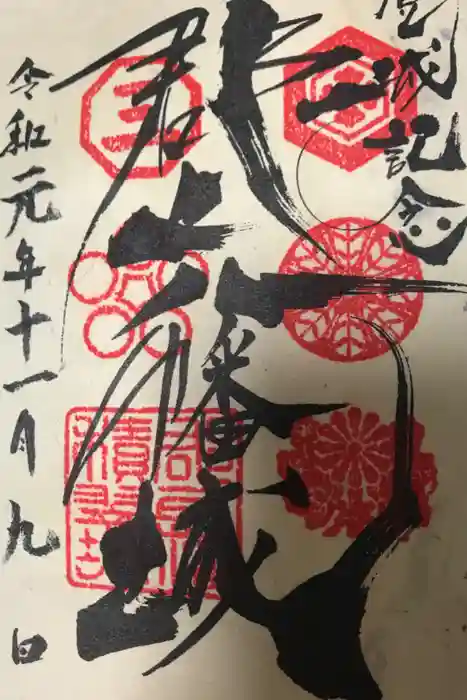 登城記念
郡上八幡城
令和元年十一月九日